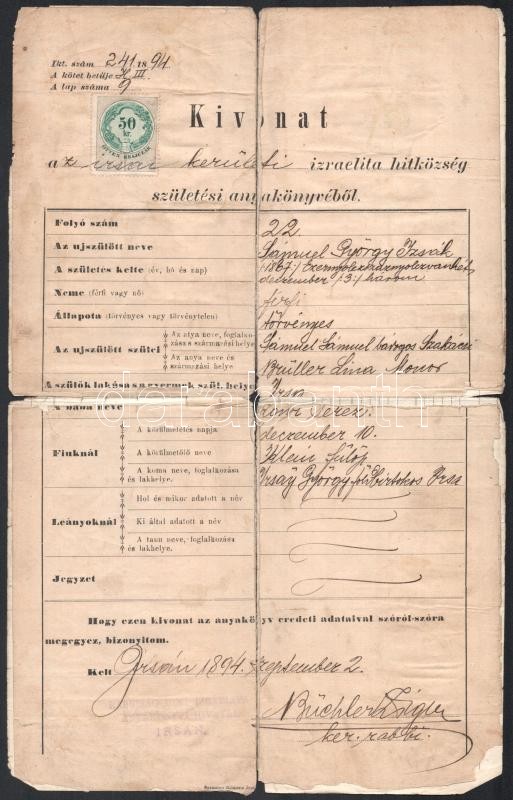 Ikt. szám 241. 1894.
A kötet betűje H III
A lap száma 9
50
kr.
ÖTVEN KRAJCZÁR
Kivonat
a z irsai kerületi izraelita hitközség
születési anyakönyvéből.
Folyó szám 22.
Az ujszülött neve Sámuel György Izsák
A születés kelte (év, hó és nap) (1887) Ezernyolczszáznyolczvanhét
deczember (3:) három
Neme (férfi vagy nő) férfi
Állapota (törvényes vagy törvénytelen) törvényes
Az ujszülött szülei
Az atya neve, foglalkozása s származási helye Sámuel Sámuel Szakácsi
Az anya neve és származási helye Brüller Lina Monor
A szülők lakása s a gyermek szül. helye Irsa
A bába neve Terez.
Fiuknál
A körülmetélés napja deczember 10.
A körülmetélő neve Klein Fülöp
A koma neve, foglalkozása és lakhelye. Irsay György földbirtokos Irsa
Leányoknál
Hol és mikor adatott a név
Ki által adatott a név
A tanu neve, foglalkozása és lakhelye.
Jegyzet
Hogy ezen kivonat az anyakönyv eredeti adataival szóról-szóra
megegyez, bizonyitom.
Kelt Irsán 1894. szeptember 2.
Büchler Zsigm
ker. rabbi.
IRSÁN.
darabanth